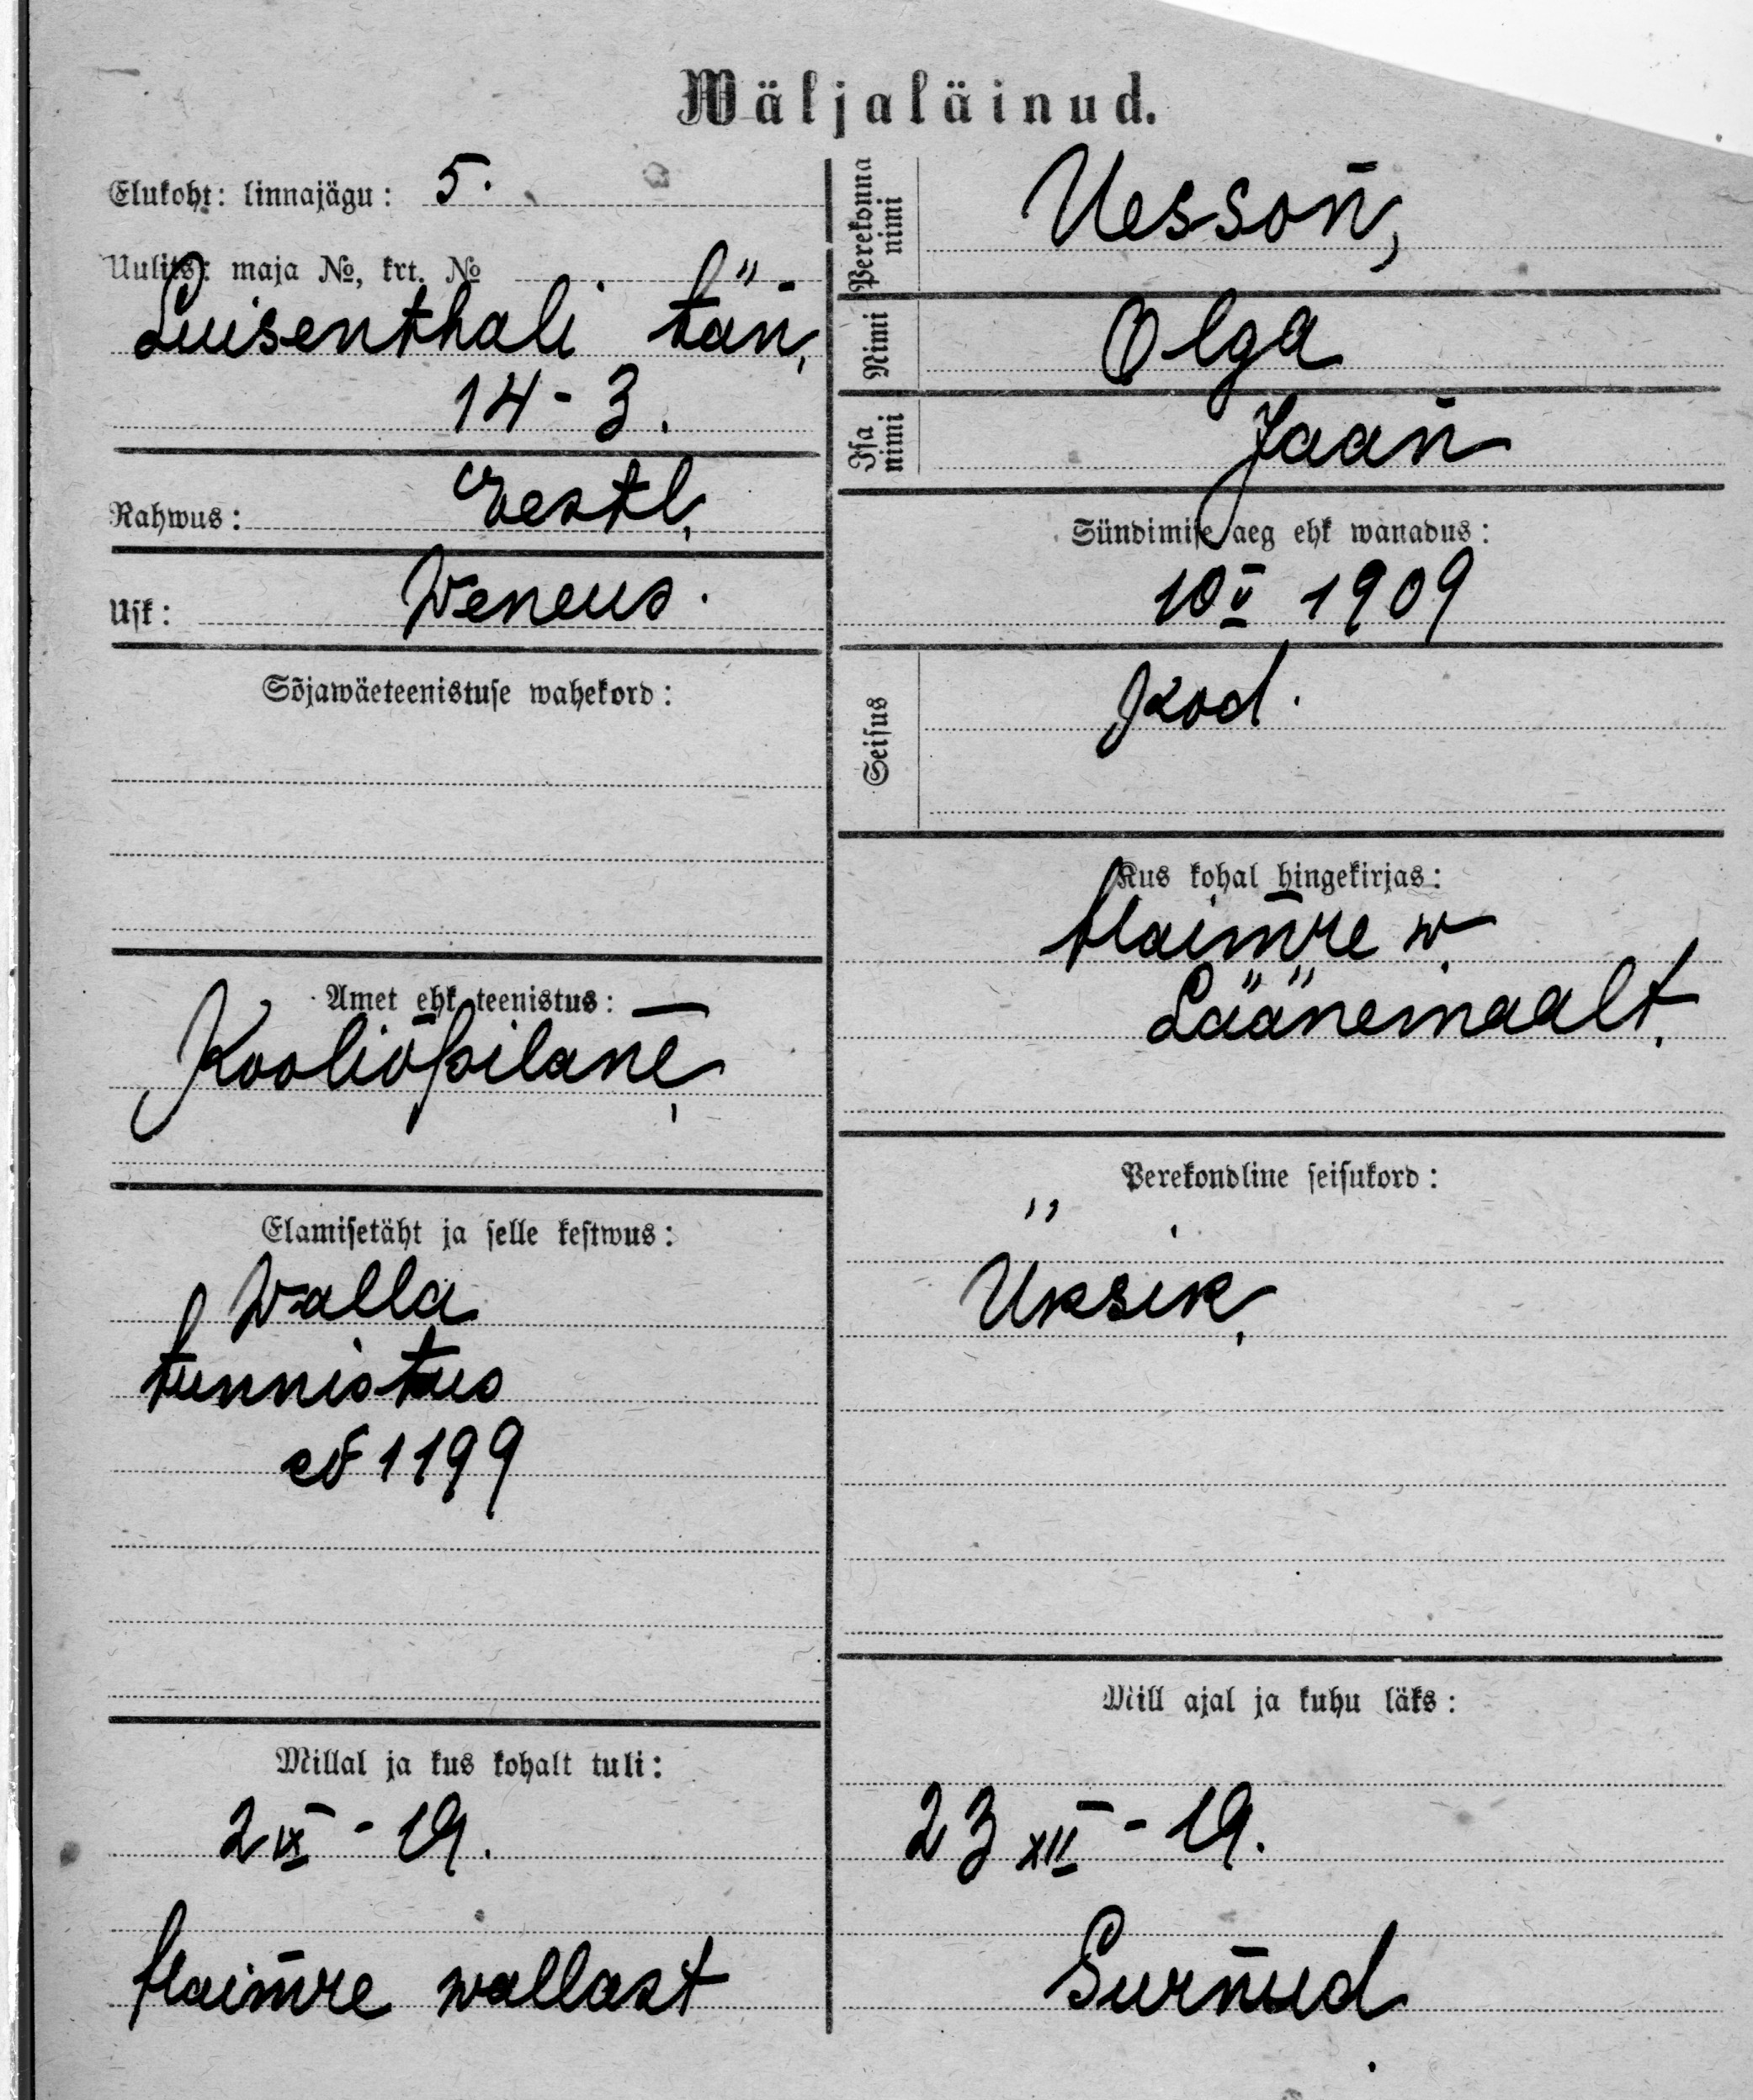 Wäljaläinud.
Elukoht: linnajägu: 5.
Uulits: maja №, krt. №
Luisenthali tän.
14 - 3.
Rahwus: Eestl.
Usk: Weneus.
Sõjawäeteenistuse wahekord:
Amet ehk teenistus:
Kooliõpilane
Elamisetäht ja selle kestwus:
Walla
tunnistus
№ 1199
Millal ja kus kohalt tuli:
2 IX - 19.
Haimre wallast
Perekonna nimi
Uesson,
Nimi
Olga
Isa nimi
Jaan
Sündimise aeg ehk wanadus:
10 V 1909
Seisus
Kod.
Kus kohal hingekirjas:
Haimre w.
Läänemaalt.
Perekondline seisukord:
Üksik.
Mill ajal ja kuhu läks:
23 XII - 19.
Surnud.